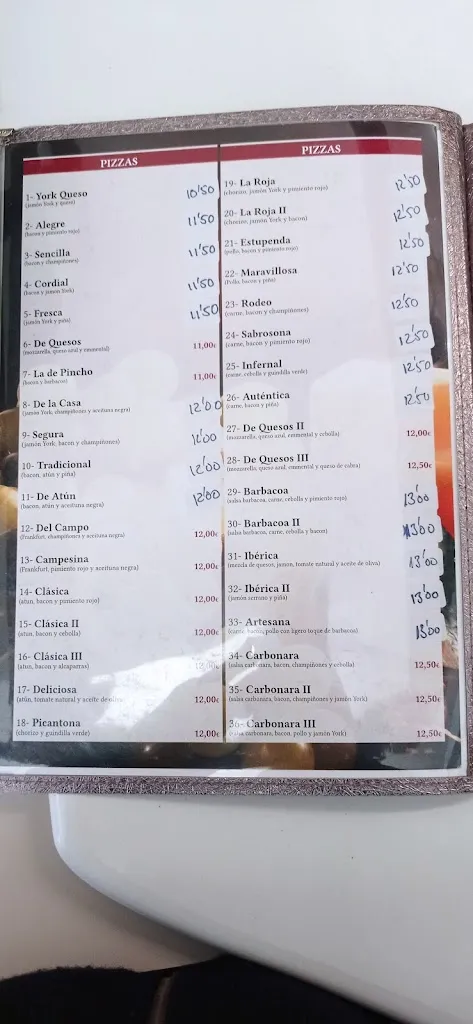 PIZZAS
1- York Queso 10'50
(jamón York y queso)
2- Alegre 11'50
(bacon y pimiento rojo)
3- Sencilla 11'50
(bacon y champiñones)
4- Cordial 11'50
(bacon y jamón York)
5- Fresca 11'50
(jamón York y piña)
6- De Quesos 11,00€
(mozzarella, queso azul y emmental)
7- La de Pincho 11,00€
(bacon y barbacoa)
8- De la Casa 12'00
(jamón York, champiñones y aceituna negra)
9- Segura 12'00
(jamón York, bacon y champiñones)
10- Tradicional 12'00
(bacon, atún y piña)
11- De Atún 12'00
(bacon, atún y aceituna negra)
12- Del Campo 12,00€
(Frankfurt, champiñones y aceituna negra)
13- Campesina 12,00€
(Frankfurt, pimiento rojo y aceituna negra)
14- Clásica 12,00€
(atun, bacon y pimiento rojo)
15- Clásica II 12,00€
(atun, bacon y cebolla)
16- Clásica III 12,00€
(atun, bacon y alcaparras)
17- Deliciosa 12,00€
(atún, tomate natural y aceite de oliva)
18- Picantona 12,00€
(chorizo y guindilla verde)
PIZZAS
19- La Roja 12'50
(chorizo, jamón York y pimiento rojo)
20- La Roja II 12'50
(chorizo, jamón York y bacon)
21- Estupenda 12'50
(pollo, bacon y pimiento rojo)
22- Maravillosa 12'50
(Pollo, bacon y piña)
23- Rodeo 12'50
(carne, bacon y champiñones)
24- Sabrosona 12'50
(carne, bacon y pimiento rojo)
25- Infernal 12'50
(carne, cebolla y guindilla verde)
26- Auténtica 12'50
(carne, bacon y piña)
27- De Quesos II 12,00€
(mozzarella, queso azul, emmental y cebolla)
28- De Quesos III 12,50€
(mozzarella, queso azul, emmental y queso de cabra)
29- Barbacoa 13'00
(salsa barbacoa, carne, cebolla y pimiento rojo)
30- Barbacoa II 13'00
(salsa barbacoa, carne, cebolla y bacon)
31- Ibérica 13'00
(mezcla de quesos, jamon, tomate natural y aceite de oliva)
32- Ibérica II 13'00
(jamón serrano y piña)
33- Artesana 13'00
(carne, bacon, pollo con ligero toque de barbacoa)
34- Carbonara 12,50€
(salsa carbonara, bacon, champiñones y cebolla)
35- Carbonara II 12,50€
(salsa carbonara, bacon, champiñones y jamón York)
36- Carbonara III 12,50€
(salsa carbonara, bacon, pollo y jamón York)